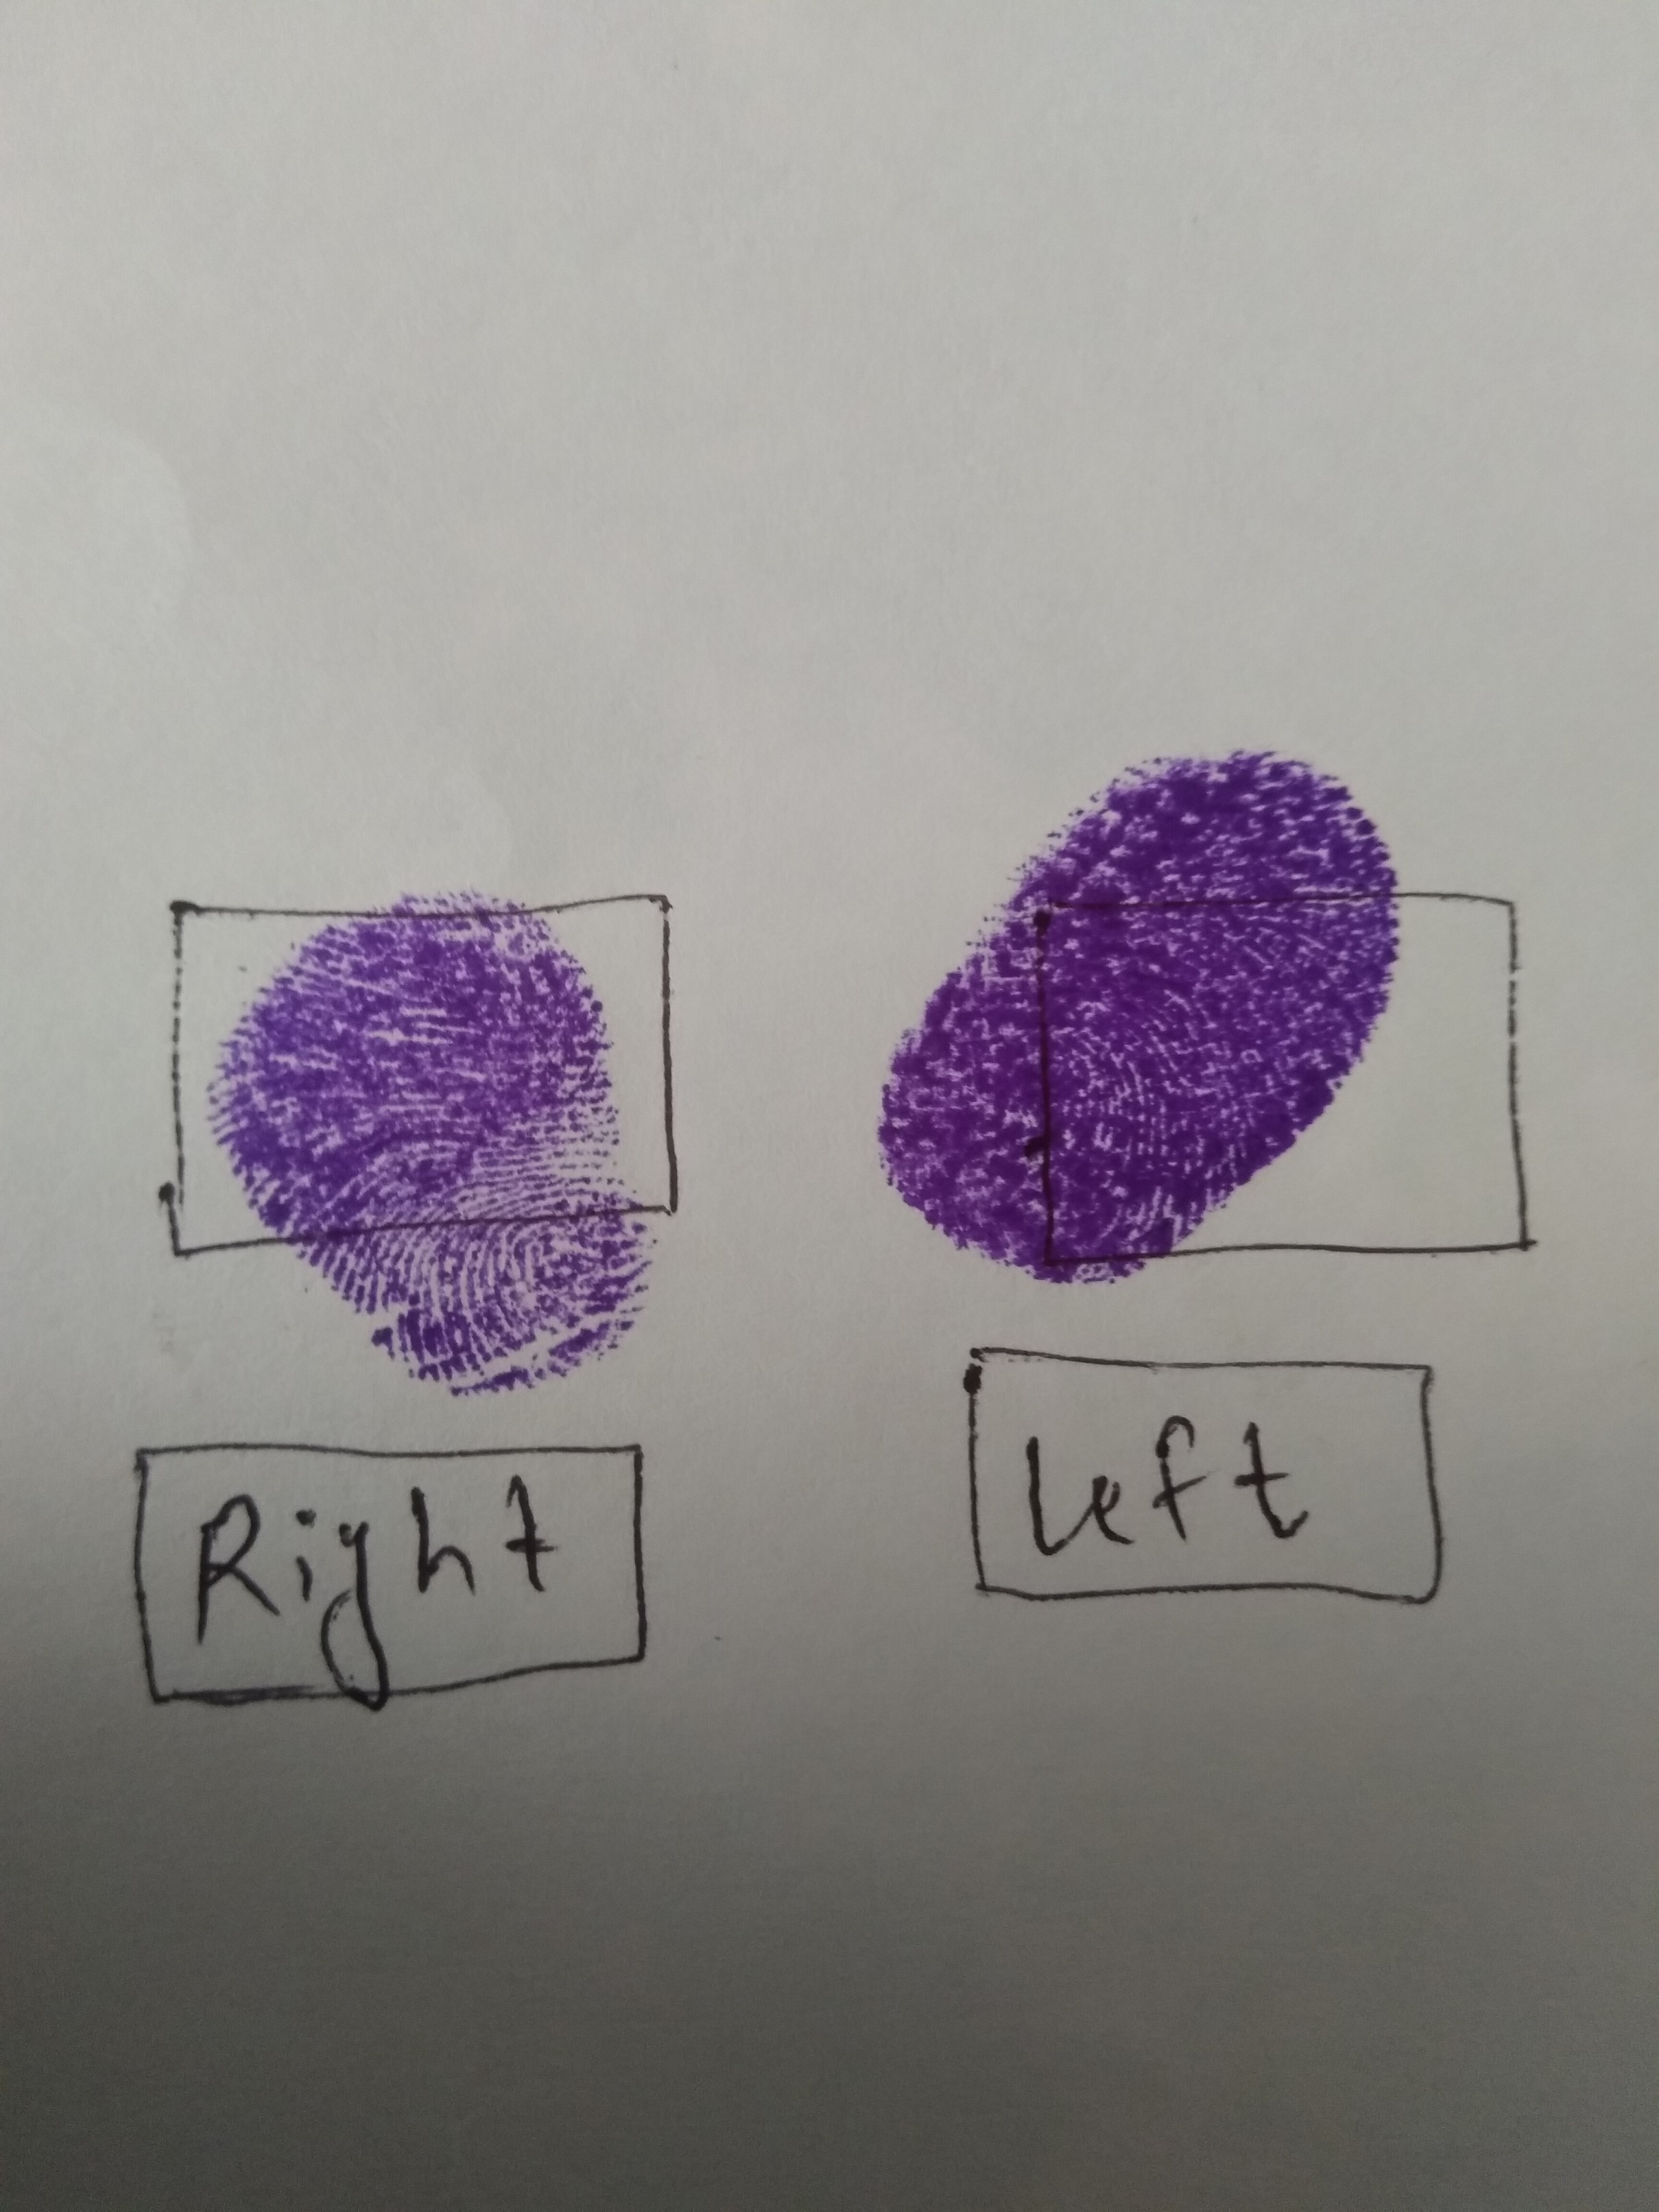 Right
left